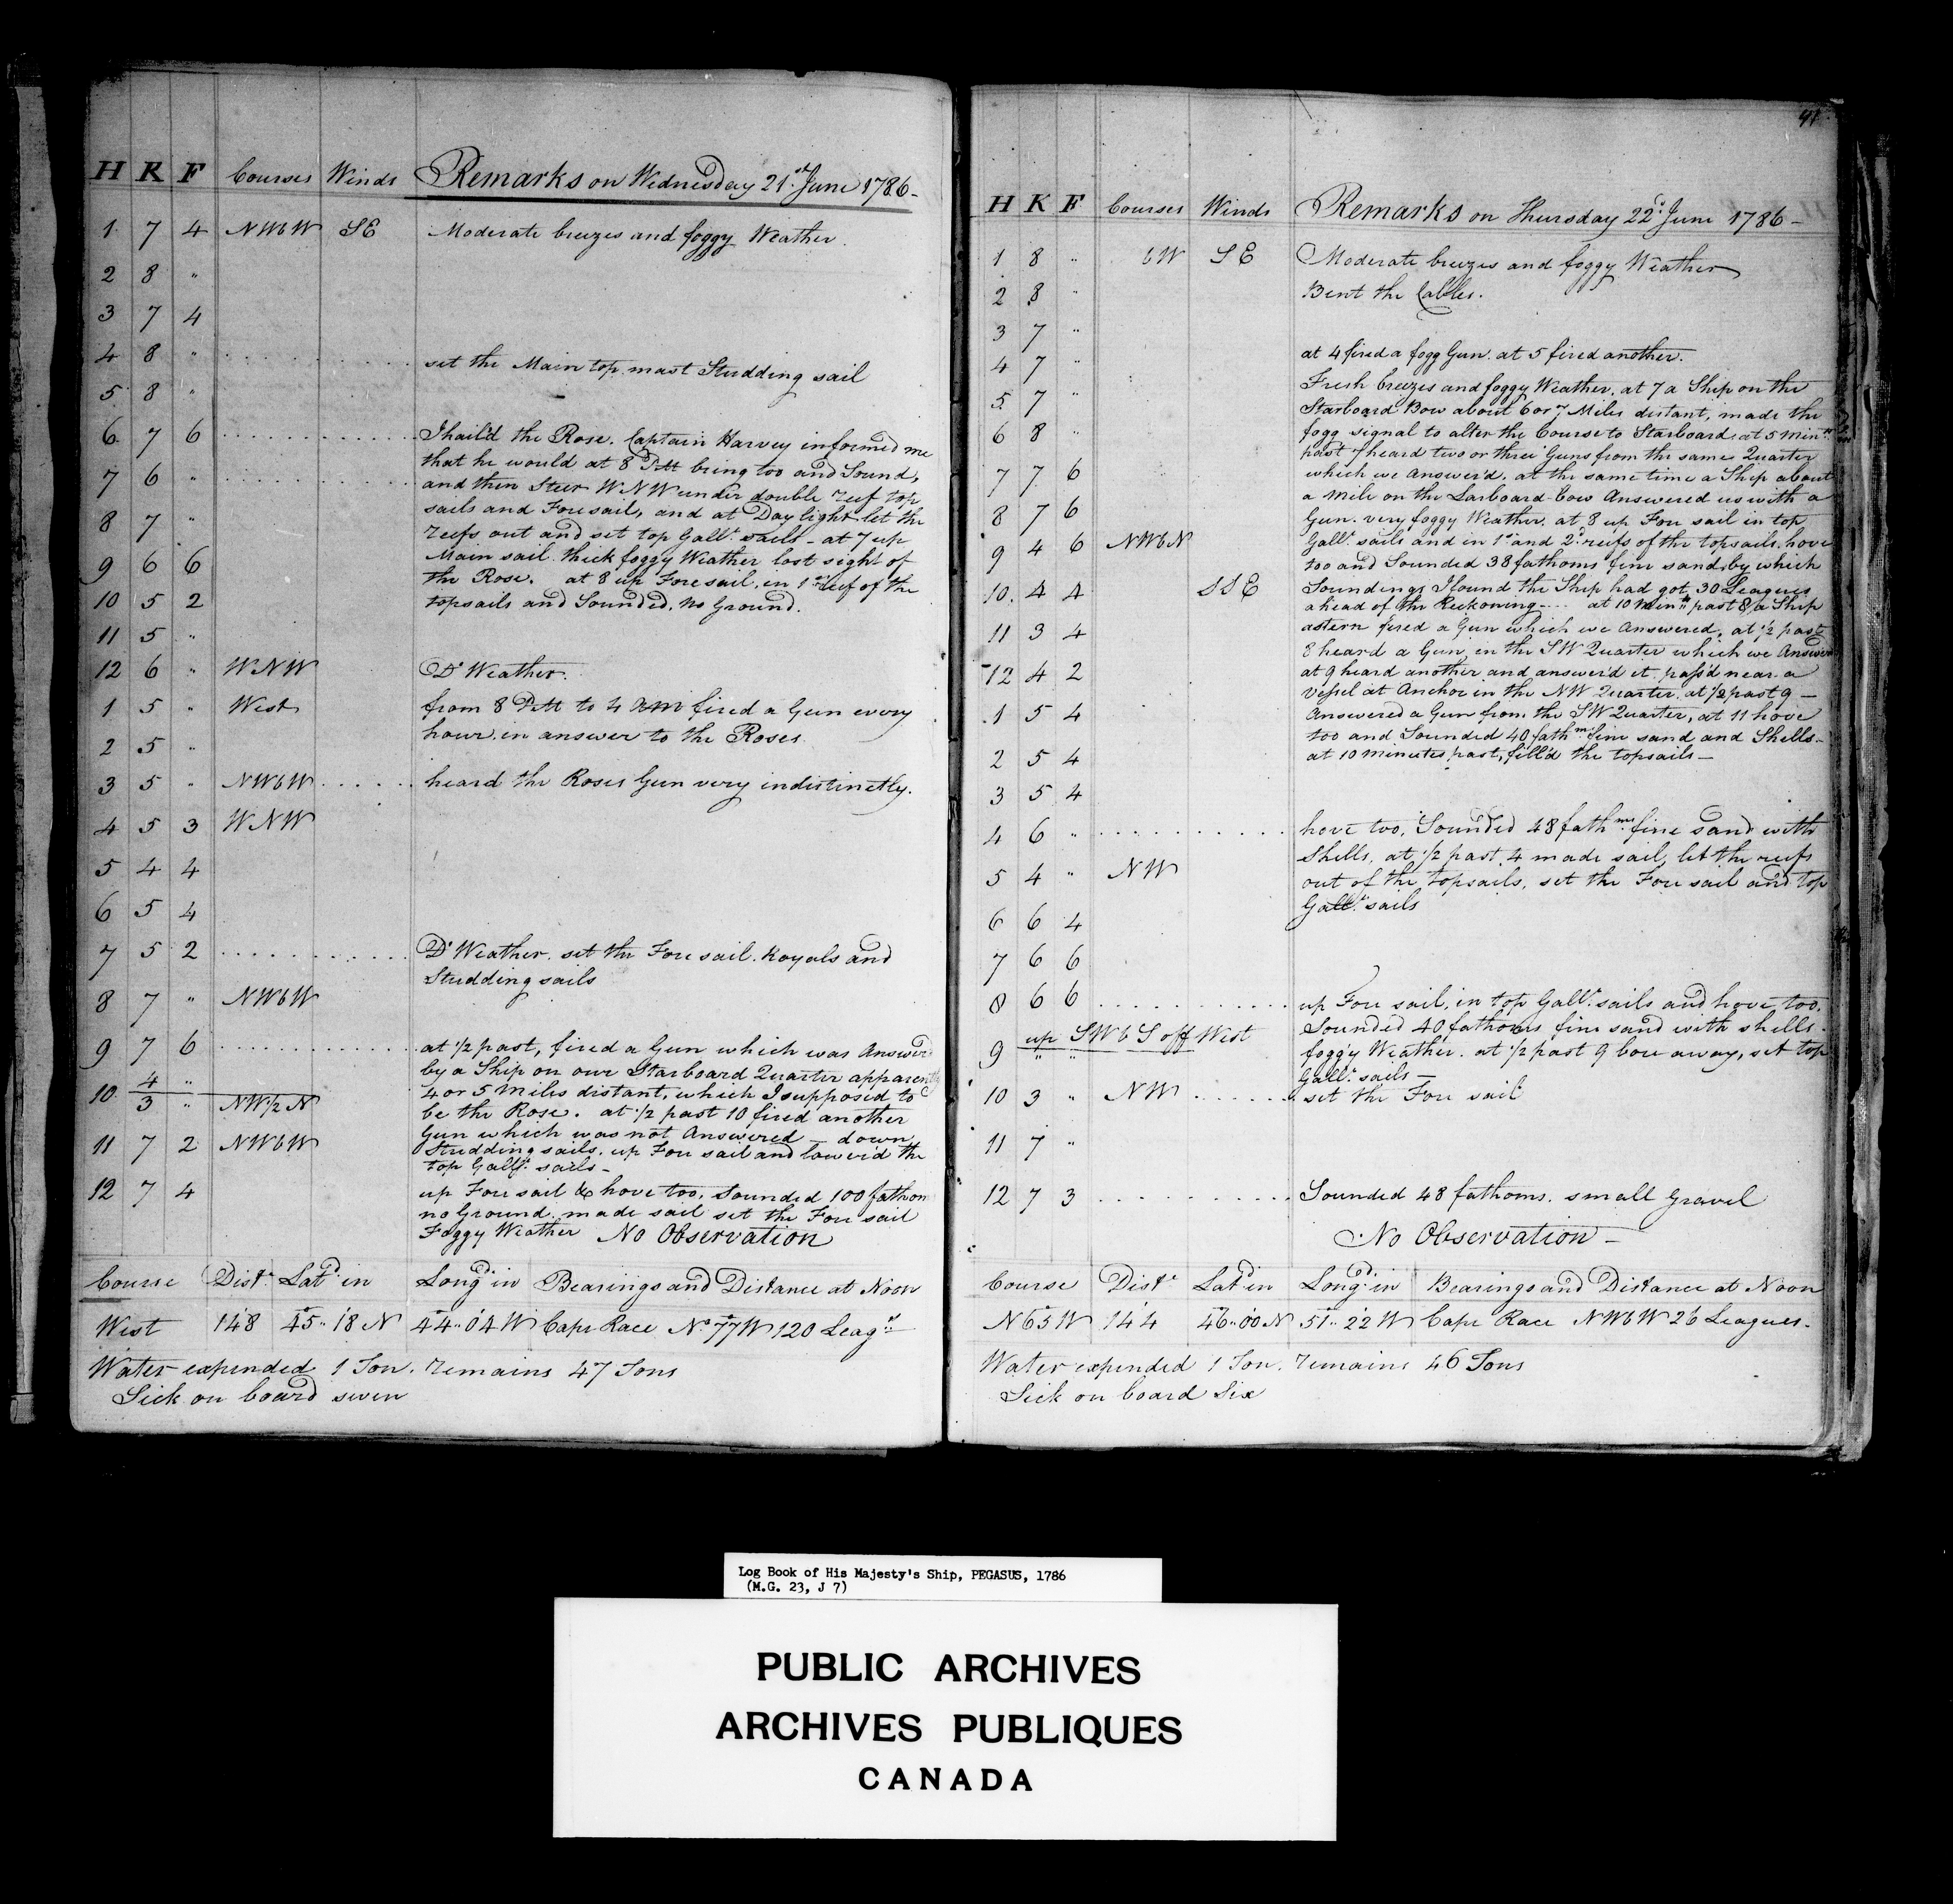 H K F Courses Winds Remarks on Wednesday 21st June 1786-
1 7 4 NWbW SE Moderate breezes and foggy Weather.
2 8 "
3 7 4
4 8 " set the Main top mast Studding sail
5 8 "
6 7 6 I hail'd the Rose. Captain Harvey informed me
that he would at 8 PM bring too and Sound,
7 6 " and then Steer WNW under double reef top
sails and Foresail, and at Daylight let the
8 7 " reefs out and set top Gallt. sails - at 7 up
Main sail. thick foggy Weather lost sight of
9 6 6 the Rose. at 8 up Fore sail, in 1st reef of the
10 5 2 topsails and Sounded, no Ground.
11 5 "
12 6 " WNW Do Weather.
1 5 " West from 8 PM to 4 AM fired a Gun every
2 5 " hour, in answer to the Roses
3 5 " NWbW heard the Roses Gun very indistinctly.
4 5 3 WNW
5 4 4
6 5 4
7 5 2 Do Weather. set the Fore sail. Royals and
Studding sails
8 7 " NWbW
9 7 6 at 1/2 past, fired a Gun which was Answer'd
by a Ship on our Starboard Quarter apparently
10 4 " 4 or 5 Miles distant, which I supposed to
3 " NW 1/2 N be the Rose. at 1/2 past 10 fired another
Gun which was not Answered - down
11 7 2 NWbW Studding sails, up Fore sail and lower'd the
top Gallt. sails-
12 7 4 up Fore sail & hove too, Sounded 100 fathom
no Ground. made sail set the Fore sail
Foggy Weather No Observation
Course Dist. Latd. in Longd. in Bearings and Distance at Noon
West 148 45°.. 18 N 44°.. 04 W Cape Race No. 77 W 120 Leags.
Water expended 1 Ton. remains 47 Tons
Sick on board seven
41
H K F Courses Winds Remarks on Thursday 22d. June 1786-
1 8 " bW SE Moderate breezes and foggy Weather
2 8 " Bent the Cables.
3 7 "
4 7 " at 4 fired a fogg Gun. at 5 fired another.
Fresh breezes and foggy Weather, at 7 a Ship on the
5 7 " Starboard Bow about 6 or 7 Miles distant, made the
6 8 " fogg signal to alter the Course to Starboard. at 5 Mins.
past 7 heard two or three Guns from the same Quarter
7 7 6 which we Answer'd. at the same time a Ship about
a Mile on the Larboard bow Answered us with a
8 7 6 Gun. very foggy Weather. at 8 up Fore sail in top
9 4 6 NWbN Gallt. sails and in 1st and 2d. reefs of the topsails. hove
too and Sounded 38 fathoms fine sand, by which
10 4 4 SSE Soundings I found the Ship had got 30 Leagues
ahead of the Reckoning--- at 10 Mins. past 8 a Ship
11 3 4 astern fired a Gun which we Answered. at 1/2 past
8 heard a Gun, in the SW Quarter which we Answer
12 4 2 at 9 heard another and answer'd it. pass'd near a
Vessel at Anchor in the NW Quarter. at 1/2 past 9 -
1 5 4 Answered a Gun from the SW Quarter, at 11 hove
too and Sounded 40 fathm. fine sand and Shells-
2 5 4 at 10 minutes past, fill'd the topsails-
3 5 4
4 6 " hove too, Sounded 48 fathms. fine sand with
Shells. at 1/2 past 4 made sail, let the reefs
5 4 " NW out of the topsails, set the Fore sail and top
6 6 4 Gallt. sails
7 6 6
8 6 6 up Fore sail, in top Gallt. sails and hove too.
up SWbS off West Sounded 40 fathoms fine sand with shells.
9 " " foggy Weather. at 1/2 past 9 bore away, set top
Gallt. sails-
10 3 " NW set the Fore sail
11 7 "
12 7 3 Sounded 48 fathoms. small gravel
No Observation-
Course Dist. Latd. in Longd. in Bearings and Distance at Noon
N 65° W 144 46°.. 00 N 51°.. 22 W Cape Race NWbW 26 Leagues.
Water expended 1 Ton. remains 46 Tons
Sick on board Six
Log Book of His Majesty's Ship, PEGASUS, 1786
(M.G. 23, J 7)
PUBLIC ARCHIVES
ARCHIVES PUBLIQUES
CANADA